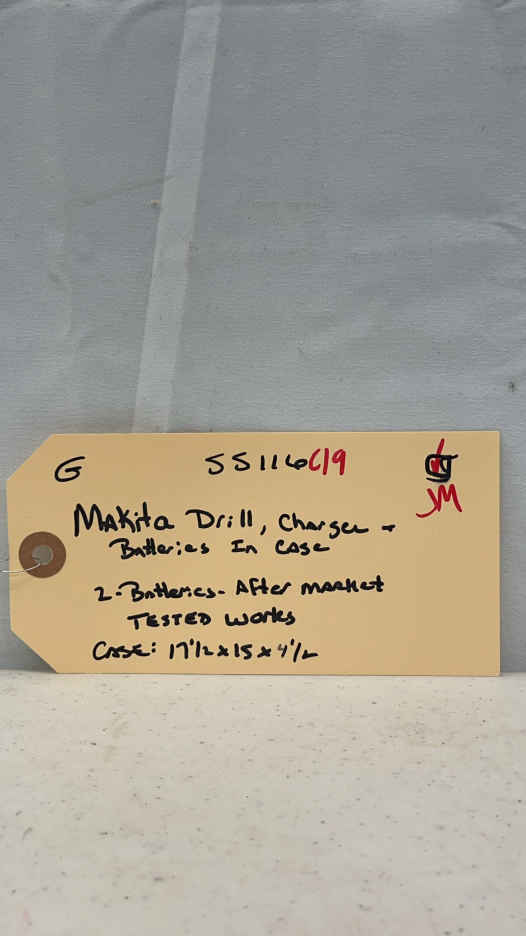 G 55116 C19
JM
Makita Drill, Charger +
Batteries In Case
2-Batteries- After market
TESTED works
CASE: 17 1/2 x 15 x 4 1/2